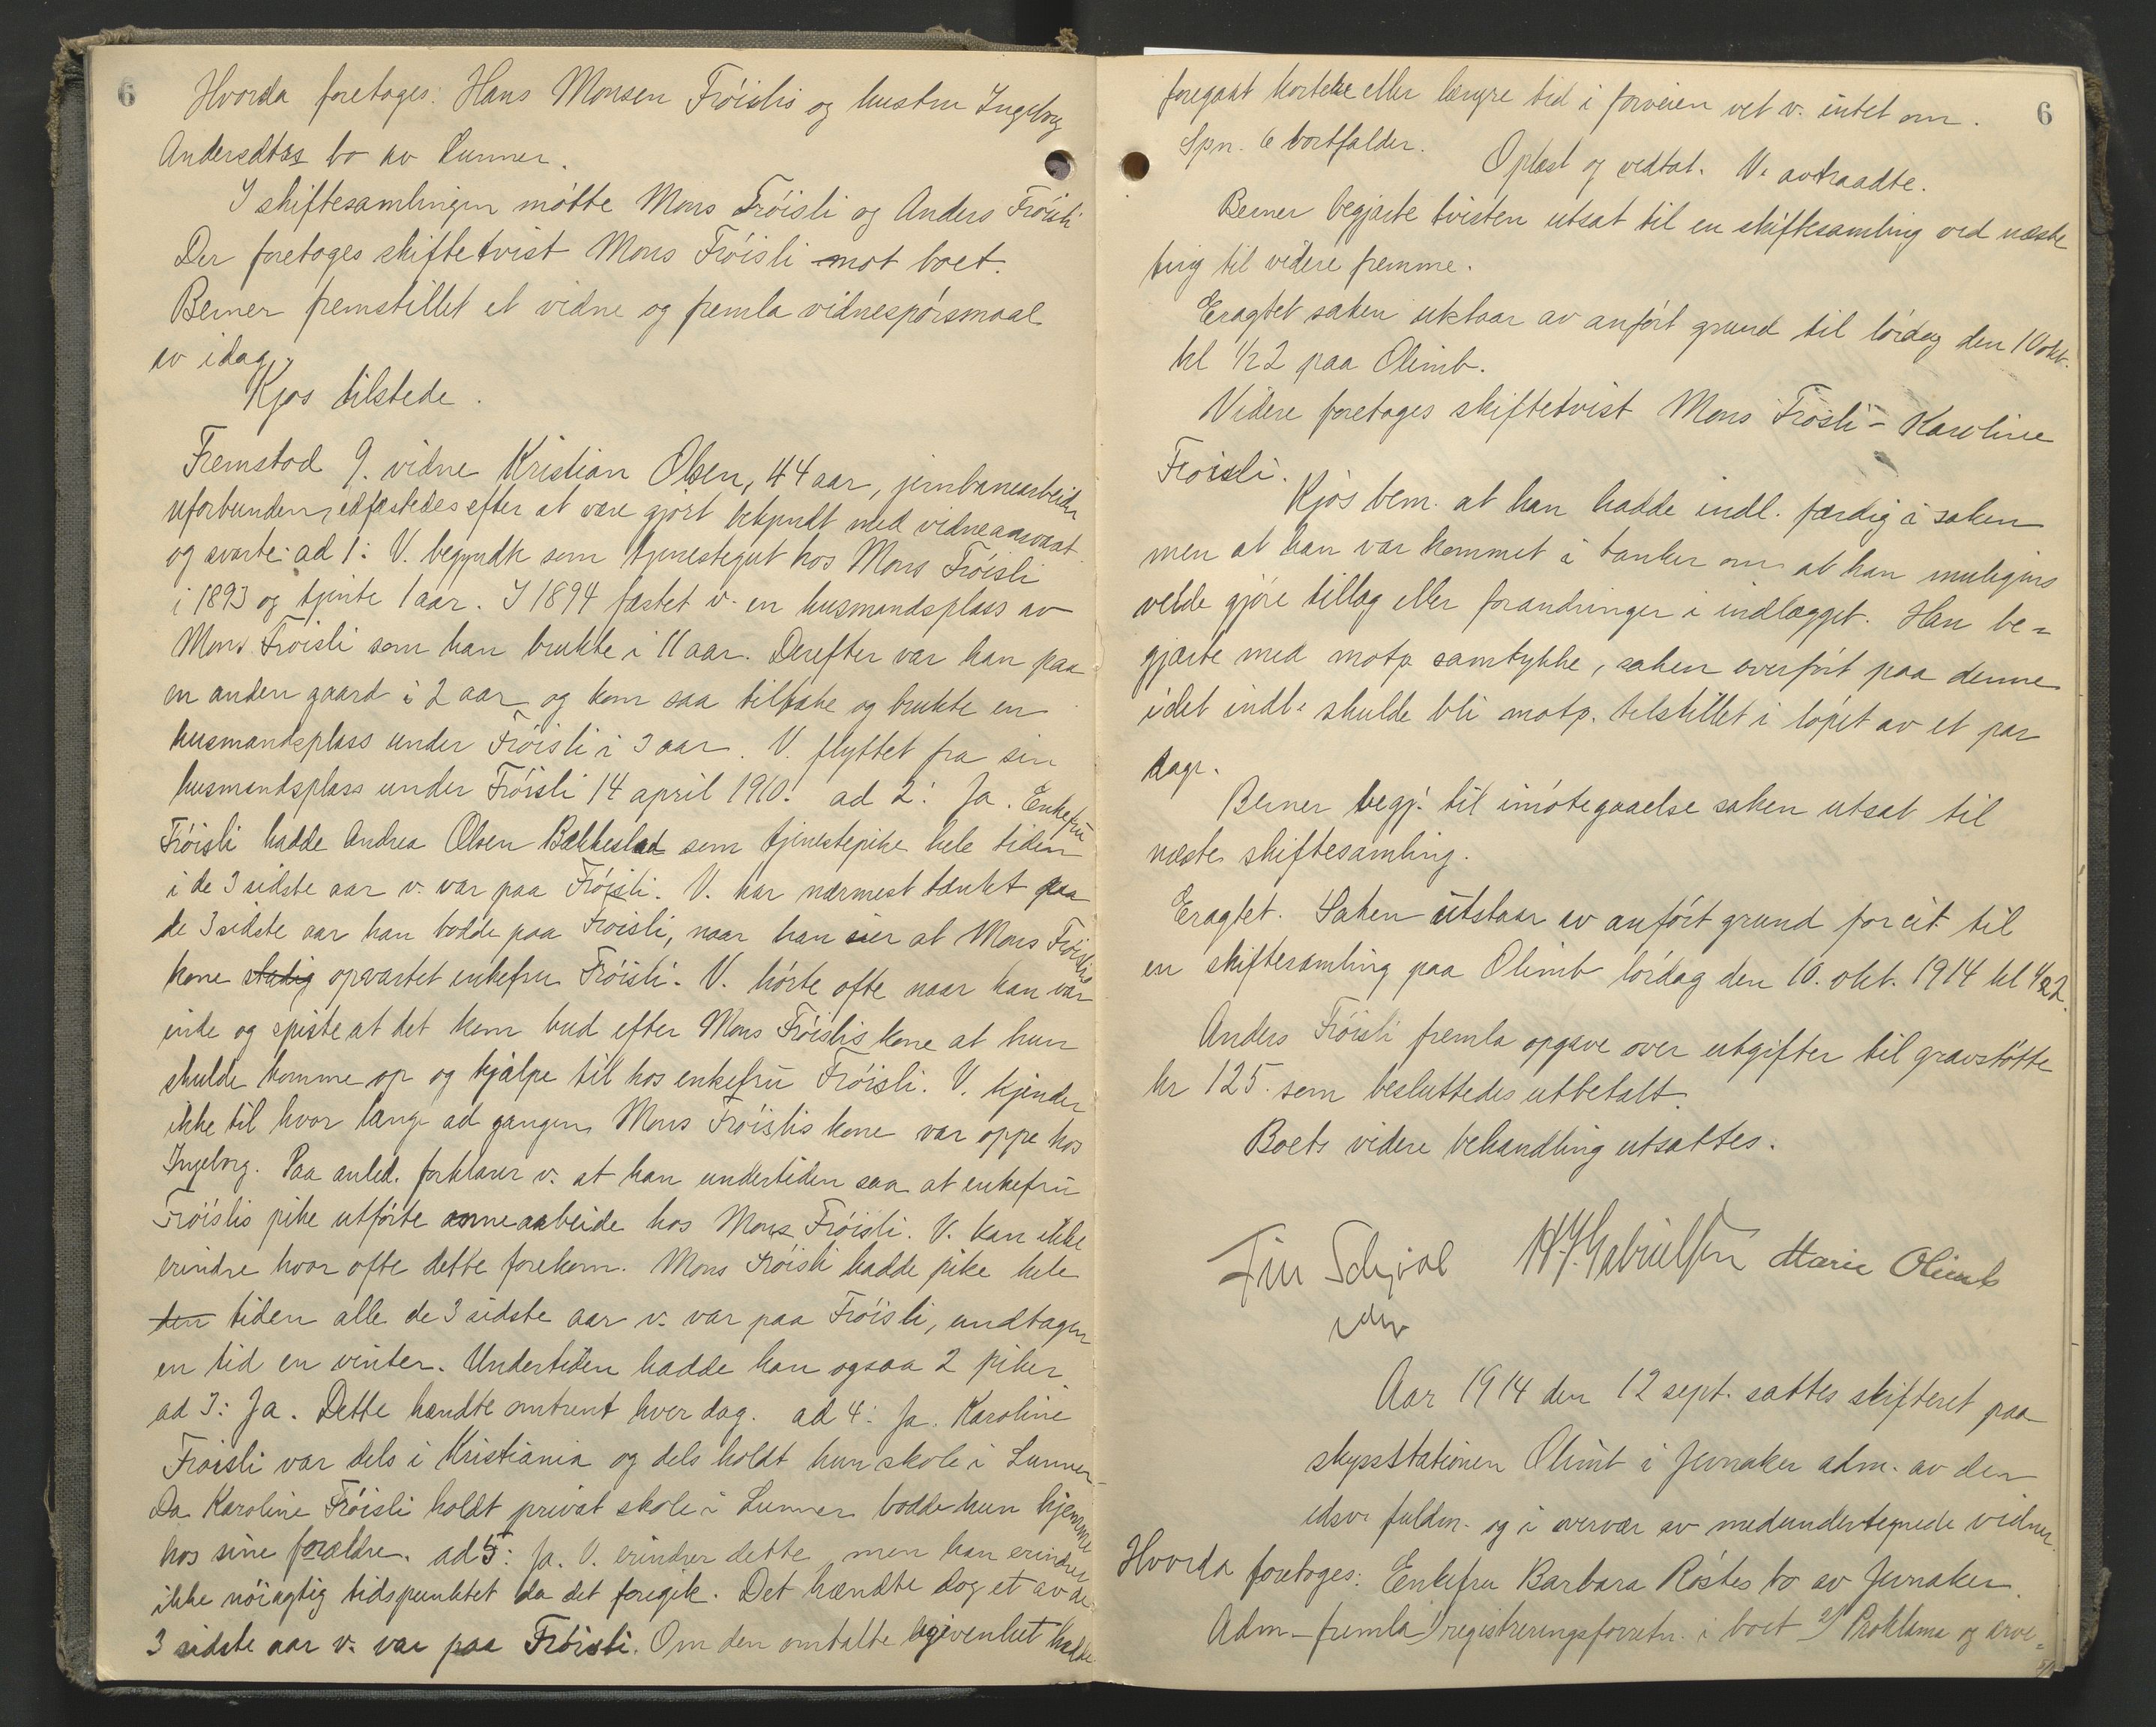 6
Hvorda foretages: Hans Monsen Fröislis og hustru Ingeborg
Andersdtrs bo av Lunner.
I skiftesamlingen mötte Mons Fröisli og Anders Fröisli
Der foretoges skiftetvist Mons Fröisli mot boet.
Berner fremstillet et vidne og fremla vidnespörsmaal
av idag.
Kjos tilstede.
Fremstod 9. vidne Kristian Olsen, 44 aar, jernbanearbeider
uforbunden, edfæstedes efter at være gjört bekjendt med vidneansvaret
og svarte: ad 1: V. begyndte som tjenestegut hos Mons Fröisli
i 1893 og tjente 1 aar. I 1894 fæstet v. en husmandsplass av
Mons Fröisli som han brukte i 11 aar. Derefter var han paa
en anden gaard i 2 aar og kom saa tilbake og brukte en
husmandsplass under Fröisli i 3 aar. V. flyttet fra sin
husmandsplass under Fröisli 14 april 1910. ad 2: Ja. Enkefru
Fröisli hadde Andrea Olsen Bækkeslad som tjenestepike hele tiden
i de 3 sidste aar v. var paa Fröisli. V. har nærmest tænkt paa
de 3 sidste aar han bodde paa Fröisli, naar han sier at Mons Fröislis
kone stadig opvartet enkefru Fröisli. V. hörte ofte naar han var
inde og spiste at det kom bud efter Mons Fröislis kone at hun
skulde komme op og hjælpe til hos enkefru Fröisli. V. kjender
ikke til hvor længe ad gangen Mons Fröislis kone var oppe hos
Ingeborg. Paa anled. forklarer v. at han undertiden saa at enkefru
Fröislis pike utförte onnearbeide hos Mons Fröisli. V. kan ikke
erindre hvor ofte dette forekom. Mons Fröisli hadde pike hele
den tiden alle de 3 sidste aar v. var paa Fröisli, undtagen
en tid en vinter. Undertiden hadde han ogsaa 2 piker.
ad 3: Ja. Dette hændte omtrent hver dag. ad 4: Ja. Karoline
Fröisli var dels i Kristiania og dels holdt hun skole i Lunner.
Da Karoline Fröisli holdt privat skole i Lunner bodde hun hjemme
hos sine forældre. ad 5: Ja. V. erindrer dette men han erindrer
ikke nöiagtig tidspunktet da det foregik. Det hændte dog et av de
3 sidste aar v. var paa Fröisli. Om den omtalte begivenhet hadde
6
foregaat kortere eller længre tid i forveien vet v. intet om.
Spn. 6 bortfalder.
Oplæst og vedtat. V. avtraadte.
Berner begjærte tvisten utsat til en skiftesamling ved næste
ting til videre fremme.
Eragtet saken utstaar av anfört grund til lördag den 10 okt.
kl 1/2 2 paa Olimb.
Videre foretoges skiftetvist Mons Fröisli - Karoline
Fröisli.
Kjos bem. at han hadde indl. færdig i saken
men at han var kommet i tanker om at han muligens
vilde gjöre tillæg eller forandringer i indlægget. Han be=
gjærte med motp. samtykke, saken overfört paa denne
idet indl. skulde bli motp. tilstillet i löpet av et par
dage.
Berner begj. til imötegaaelse saken utsat til
næste skiftesamling.
Eragtet. Saken utstaar av anfört grund forcit til
en skiftesamling paa Olimb lördag den 10. okt. 1914 kl 1/2 2.
Anders Fröisli fremla opgave over utgifter til gravstötte
kr 125. som besluttedes utbetalt.
Boets videre behandling utsattes.
H. J. Gabrielsen Marie Olimb
Aar 1914 den 12 sept. sattes skifteret paa
skysstationen Olimb i Jevnaker adm. av den
edsv. fuldm. og i overvær av medundertegnede vidner.
Hvorda foretoges: Enkefru Barbara Röstes bo av Jevnaker.
Adm. fremla 1) registreringsforretn. i boet 2) Proklama og arve=